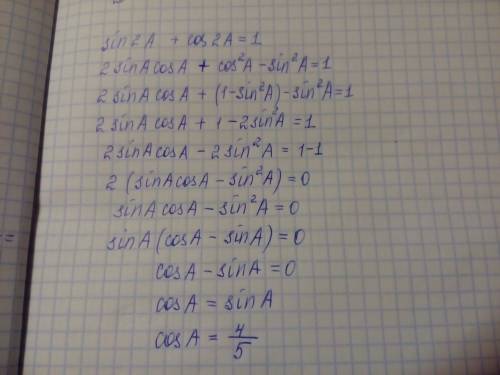 sin2A + cos2A = 1
2 sinA cosA + cos²A - sin²A = 1
2 sinA cosA + (1 - sin²A) - sin²A = 1
2 sinA cosA + 1 - 2sin²A = 1
2 sinA cosA - 2 sin²A = 1-1
2 (sinA cosA - sin²A) = 0
sinA cosA - sin²A = 0
sinA (cosA - sinA) = 0
cosA - sinA = 0
cosA = sinA
cosA = 4/5